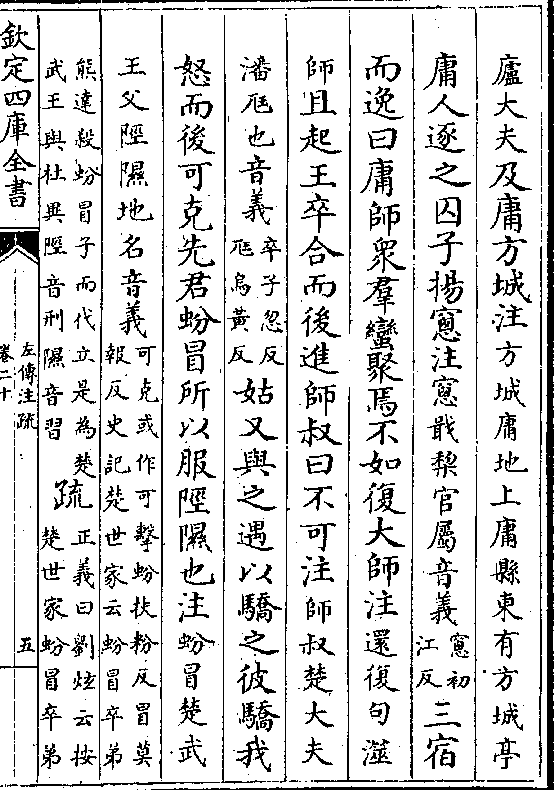 廬大夫及庸方城注方城庸地上庸縣東有方城亭
庸人逐之囚子揚窻注窻戢黎官屬音義窻初江反三宿
而逸曰庸師衆羣蠻聚焉不如復大師注還復句澨
師且起王卒合而後進師叔曰不可注師叔楚大夫
潘尫也音義卒子忽反尫烏黃反姑又與之遇以驕之彼驕我
怒而後可克先君蚡冒所以服陘隰也注蚡冒楚武
王父陘隰地名音義可克或作可擊蚡扶粉反冒莫報反史記楚世家云蚡冒卒弟
熊達殺蚡冒子而代立是為楚武王與杜異陘音刑隰音習疏正義曰劉炫云按楚世家蚡冒卒弟
欽定四庫全書
左傳注疏
卷二十
五